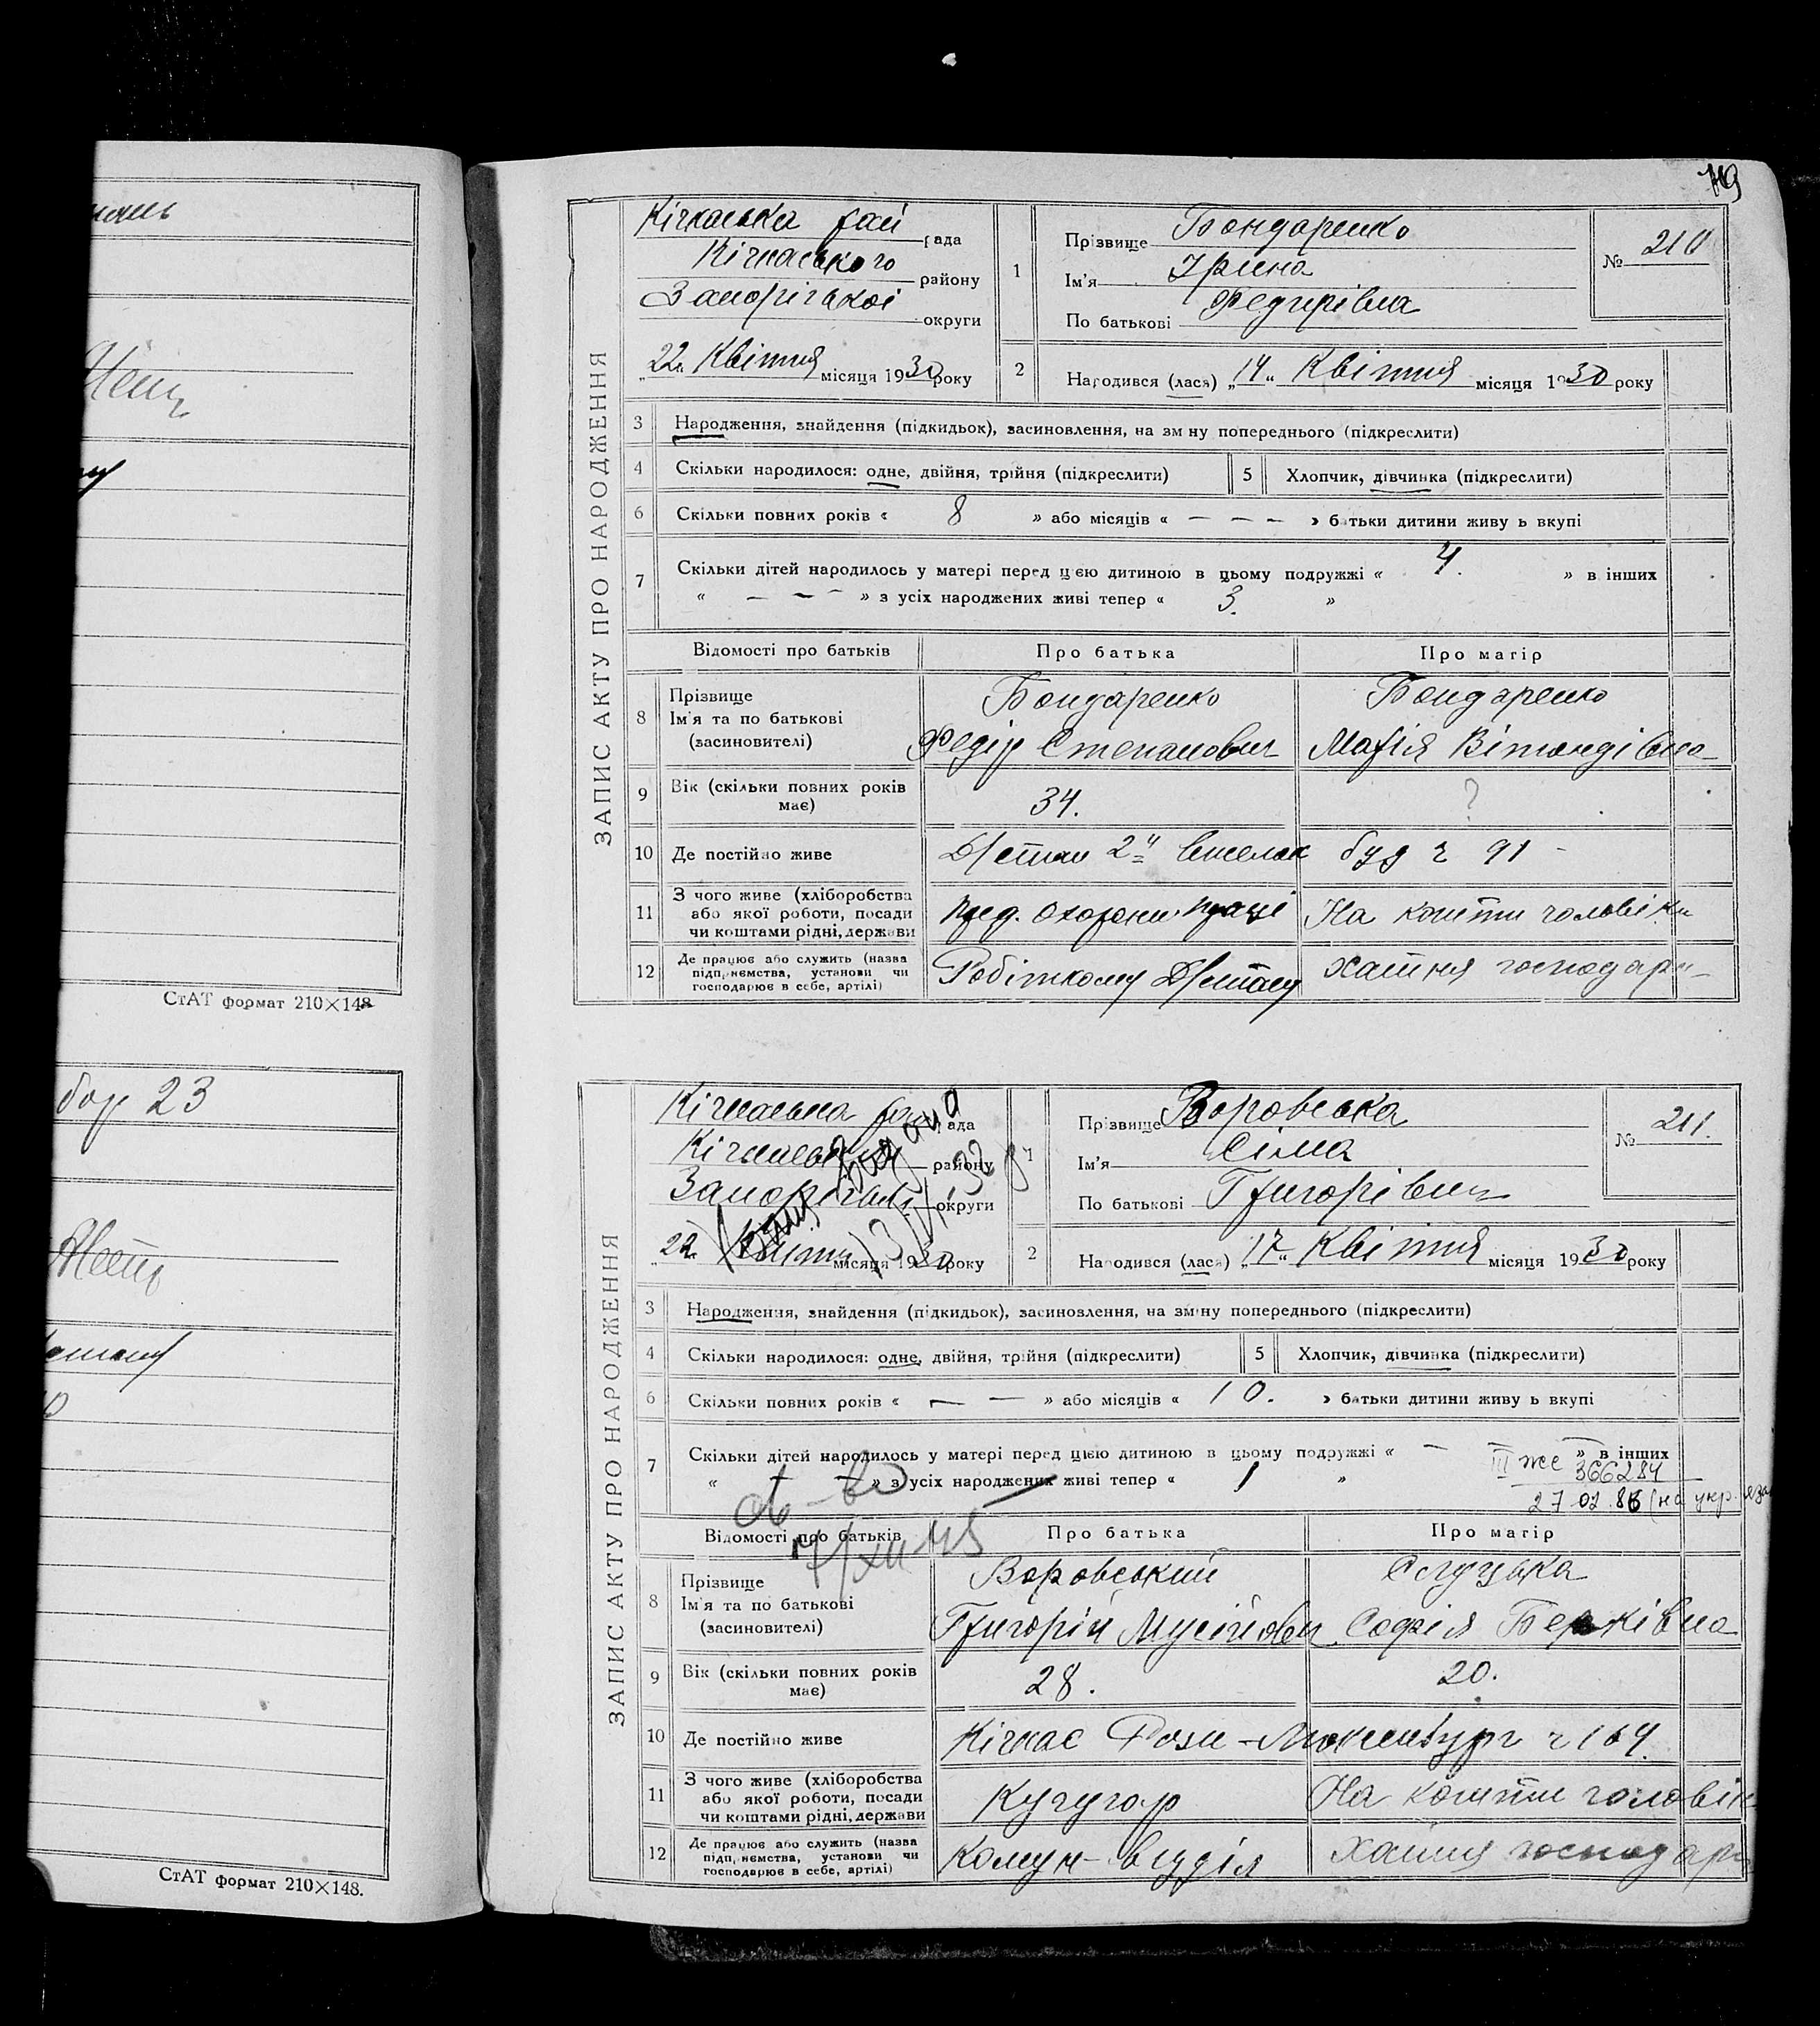 119
Кічкаська рай рада
Кічкаського району
Запорізької округи
„22“ Квітня місяця 1930 року
1
Прізвище Бондаренко
Ім'я Ірина
По батькові Федирівна
№ 210
2
Народився (лася) „14“ Квітня місяця 1930 року
ЗАПИС АКТУ ПРО НАРОДЖЕННЯ
3 Народження, знайдення (підкидьок), засиновлення, на зміну попереднього (підкреслити)
4 Скільки народилося: одне, двійня, трійня (підкреслити)
5 Хлопчик, дівчинка (підкреслити)
6 Скільки повних років « 8 » або місяців « — — — » батьки дитини живуть вкупі
7 Скільки дітей народилось у матері перед цією дитиною в цьому подружжі « 4. » в інших
« — — — » з усіх народжених живі тепер « 3. »
Відомості про батьків Про батька Про матір
8 Прізвище
Ім'я та по батькові
(засновителі)
Бондаренко
Федір Степанович
Бондаренко
Марія
9 Вік (скільки повних років
має)
34. ?
10 Де постійно живе
2й буд ч 91 —
11 З чого живе (хліборобства
або якої роботи, посади
чи коштами рідні, держави
Пред. Охорони праці На кошти чоловіка
12 Де працює або служить (назва
підприємства, установи чи
господарює в себе, артілі)
Робітком Хатня господар
СтАТ формат 210×148
бар 23
СтАТ формат 210×148.
Кічкаська рада
району
Запорізької округи
„22“ Квітня місяця 1930 року
1
Прізвище Воровська
Ім'я Сіма
По батькові Григорівна
№ 211.
2
Народився (лася) „17“ Квітня місяця 1930 року
ЗАПИС АКТУ ПРО НАРОДЖЕННЯ
3 Народження, знайдення (підкидьок), засиновлення, на зміну попереднього (підкреслити)
4 Скільки народилося: одне, двійня, трійня (підкреслити)
5 Хлопчик, дівчинка (підкреслити)
6 Скільки повних років « — — » або місяців « 10. » батьки дитини живуть вкупі
7 Скільки дітей народилось у матері перед цією дитиною в цьому подружжі « — — — » в інших
« — — » з усіх народжених живі тепер « 1 »
III же 366284
27 02.86 (на укр. языке
Відомості про батьків Про батька Про матір
8 Прізвище
Ім'я та по батькові
(засиновителі)
Воровський
Григорій Мусійович
Слуцька
Софія Берківна
9 Вік (скільки повних років
має)
28. 20.
10 Де постійно живе
Кічкас Рози-Люксембург ч 164.
11 З чого живе (хліборобства
або якої роботи, посади
чи коштами рідні, держави
Кучугар На кошти чоловіка
12 Де працює або служить (назва
підприємства, установи чи
господарює в себе, артілі)
Комун-відділ Хатня господар